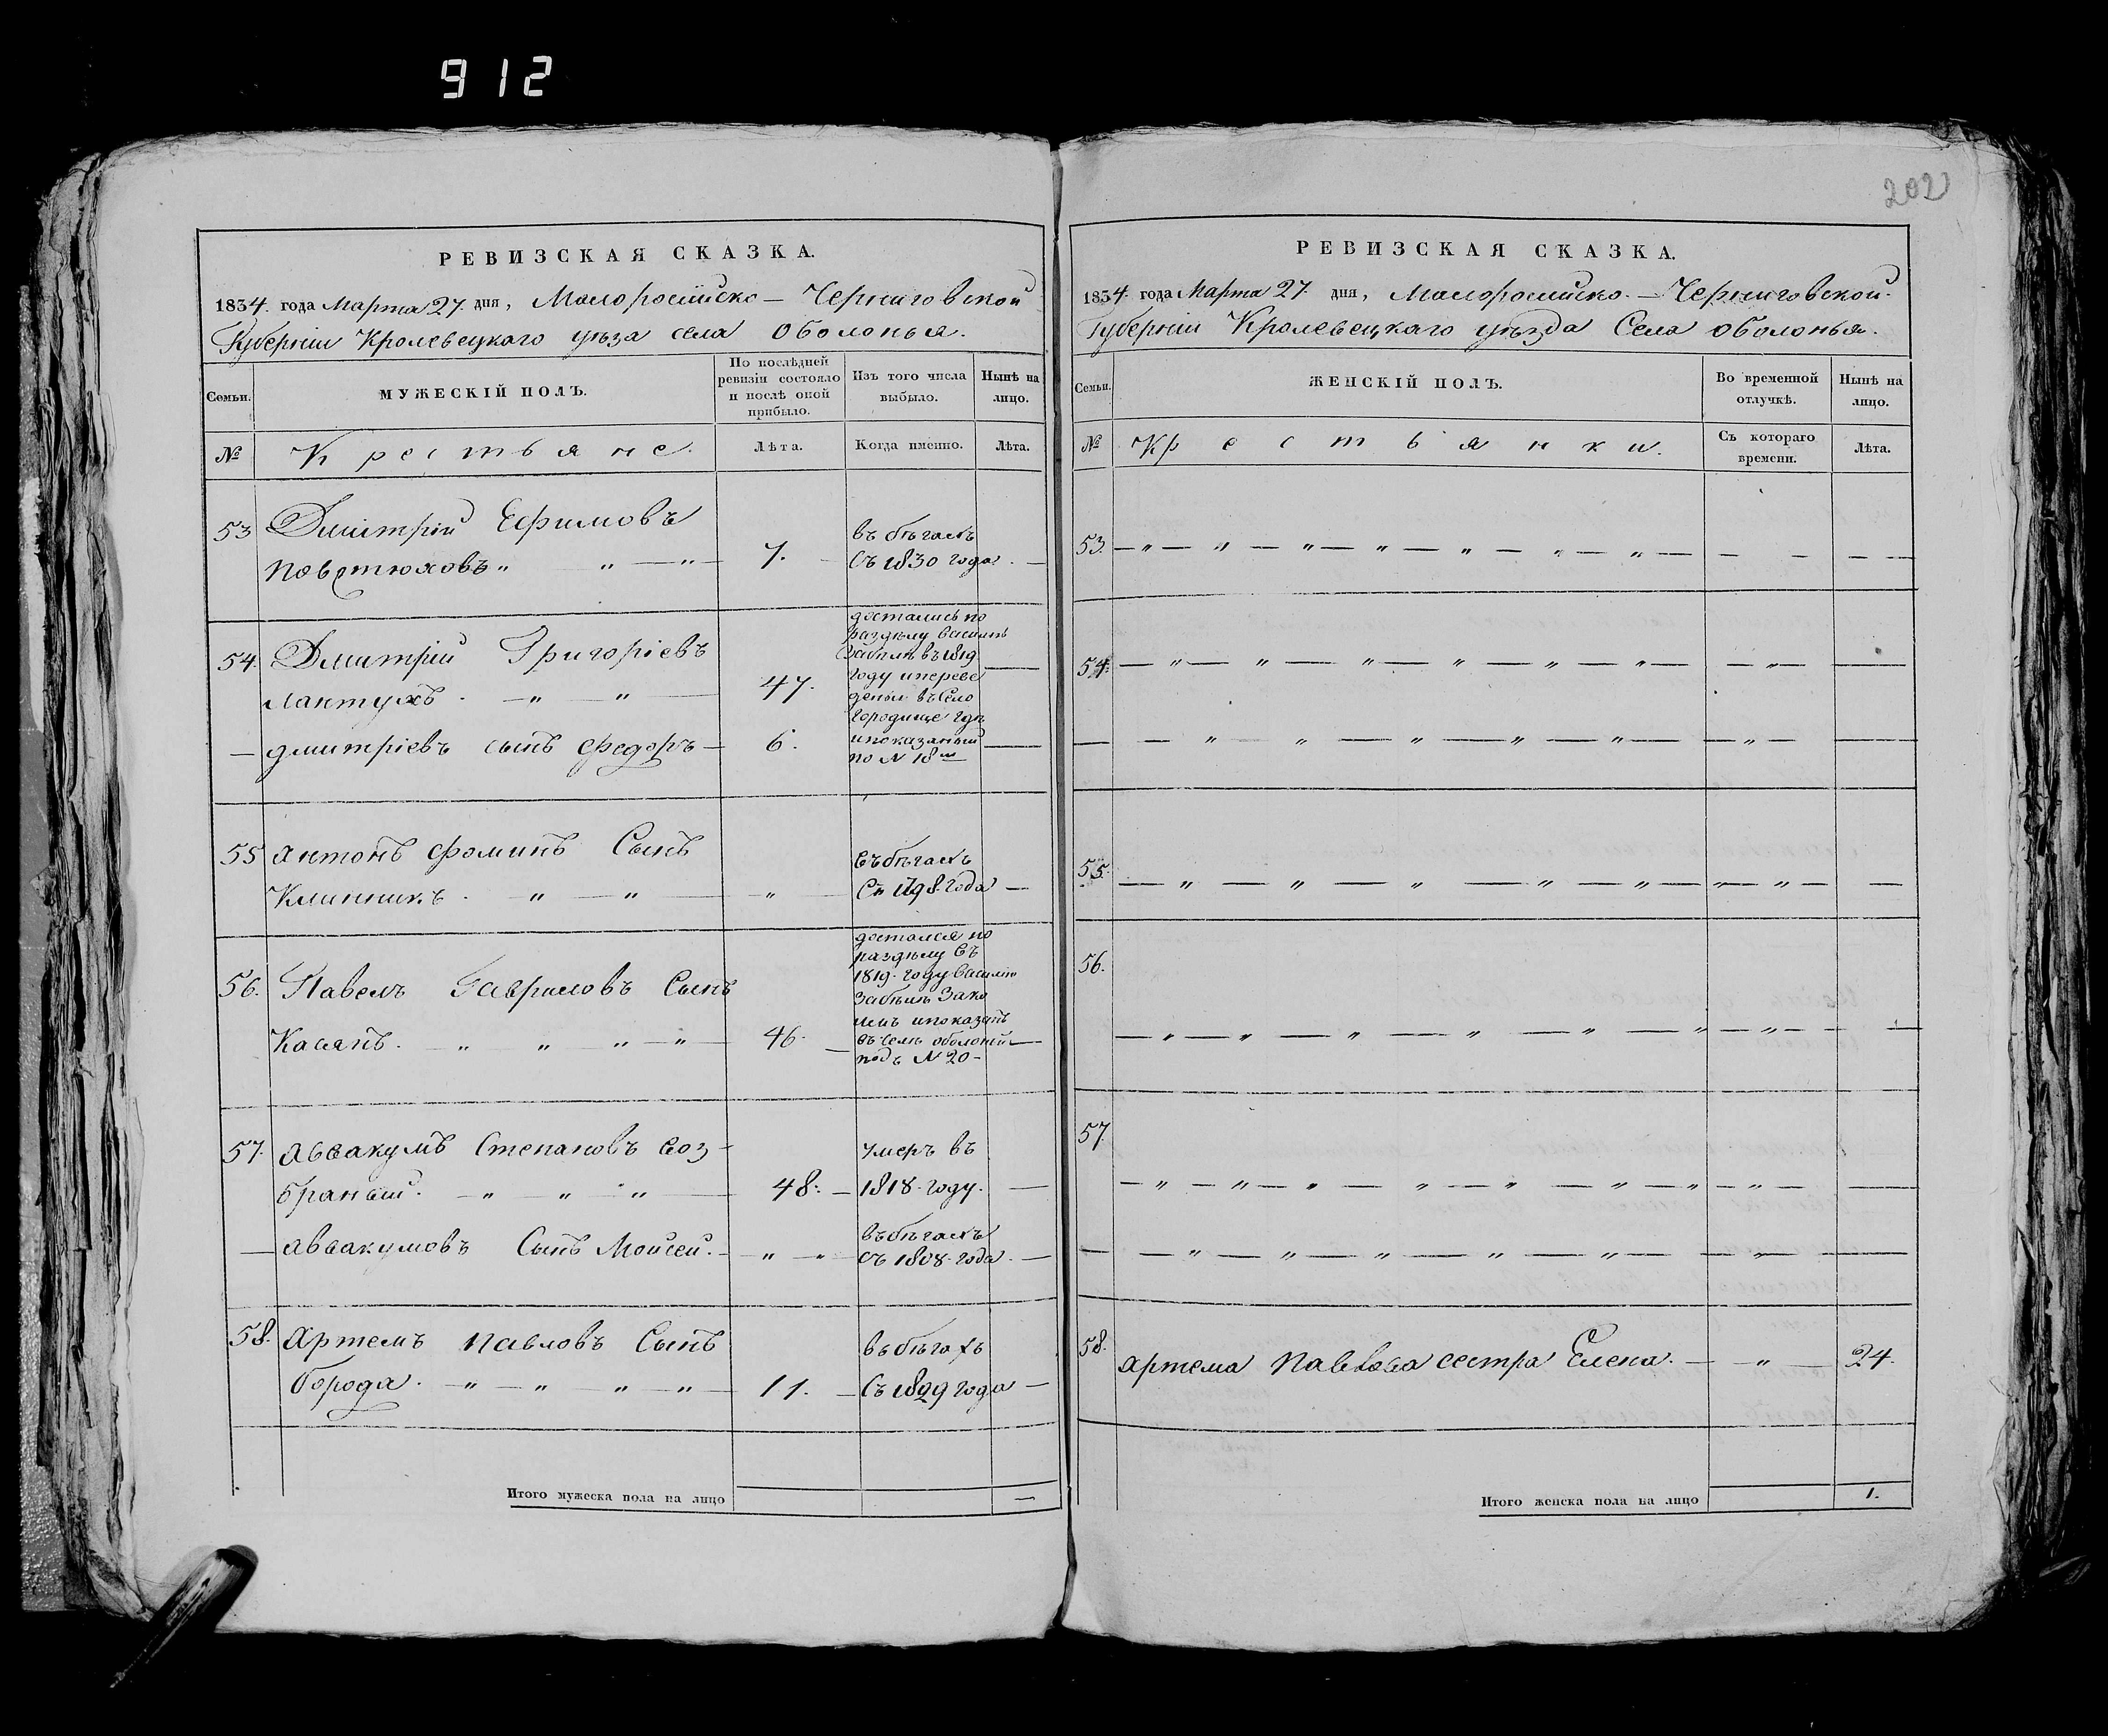 912
202
РЕВИЗСКАЯ СКАЗКА.
1834. года Марта 27. дня, Малоросiйско — Черниговской
Губернiи Кролевецкаго уѣза села Оболонья.
Семьи.
МУЖЕСКІЙ ПОЛЪ.
По послѣдней ревизіи состояло и послѣ оной прибыло.
Изъ того числа выбыло.
Нынѣ на лицо.
№
Крестьяне.
Лѣта.
Когда именно.
Лѣта.
53 Дмитрiй Ефимовъ
въ бѣгахъ
" " — " — 7. — Съ 1830 года. —
достались по
раздѣлу
54. Дмитрiй Григорiевъ
въ 1819
Лантухъ. — " — " — 47.
году и переве
дены въ Село
Городище гдѣ
— Дмитрiевъ сынъ Федоръ — 6.
и показаный
по N 18
55 Антонъ Фоминъ Сынъ
въ бѣгахъ
. — " — " — " — года —
достался по
раздѣлу въ
1819. году Василiю
56. Павелъ Гавриловъ Сынъ
Забѣлѣ
и показанъ
Касянъ. — " " " — " — 46. —
въ селѣ Оболонiи —
подъ N 20 —
57. Аввакумъ Степановъ Воз-
умеръ въ
браный. — " " " — 48. — 1818. году. —
въ бѣгахъ
— Аввакумовъ Сынъ Моисей. — " — " съ 1808. года. —
58. Артемъ Павловъ Сынъ
въ бѣгахъ
Борода. — " — " " — " — 11. — Съ 1829 года —
Итого мужеска пола на лицо —
РЕВИЗСКАЯ СКАЗКА.
1834. года Марта 27. дня, Малоросiйско. — Черниговской.
Губернiи Кролевецкаго уѣзда Села Оболонья.
Семьи.
ЖЕНСКІЙ ПОЛЪ.
Во временной отлучкѣ.
Нынѣ на лицо.
№
Крестьянки.
Съ котораго времени.
Лѣта.
53. — " — " — " — " — " — " — " — — — — —
54. — " — " — " — " — " — " — — " — —
— — " — " — " — " — " — — " — —
55. — " — " — " — " — " — " — " — —
56.
— " — " — " — " — " — " — " — —
57.
— " — " — " — " — " — " — " — " — —
— — " — " — " — " — " — — " — —
58. Артема Павлова сестра Елена. — — " — 24.
Итого женска пола на лицо 1.